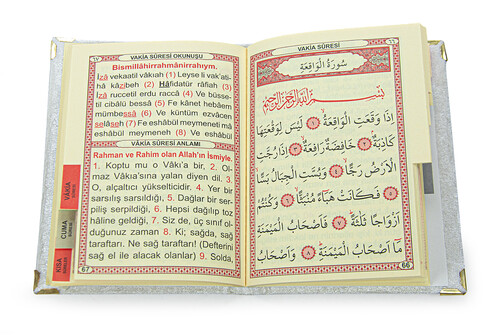 ٦٧
VAKİA SÛRESİ OKUNUŞU
Bismillâhirrahmânirrahıym.
İzâ vekaatil vâkıah (1) Leyse li vak'ati-
hâ kâzibeh (2) Hâfidatür râfiah (3)
İzâ ruccetil erdu raccâ (4) Ve büsse-
til cibâlü bessâ (5) Fe kânet hebâem
mümbessâ (6) Ve küntüm ezvâcen
selâseh (7) Fe eshâbül meymeneti mâ
eshâbül meymeneh (8) Ve eshâbül
VAKİA SÛRESİ ANLAMI
Rahman ve Rahim olan Allah'ın ismiyle.
1. Koptu mu o Vâkı'a bir, 2. Ol-
maz Vâkıa'sına yalan diyen dil. 3.
O, alçaltıcı yükselticidir. 4. Yer bir
sarsılış sarsıldığı, 5. Dağlar bir ser-
piliş serpildiği, 6. Hepsi dağılıp toz
hâline geldiği, 7. Siz de, üç sınıf ol-
duğunuz zaman 8. Ki; sağda, sağ
taraftarı. Ne sağ taraftarı! (Defterini
sağ el ile alacak olanlar) 9. Solda,
67
VAKİA
CUMA
KISA
VAKİA SÛRESİ
٦٦
سُورَةُ الْوَاقِعَةِ
بِسْمِ اللّٰهِ الرَّحْمٰنِ الرَّحِيمِ
اِذَا وَقَعَتِ الْوَاقِعَةُ ﴿١﴾ لَيْسَ لِوَقْعَتِهَا
كَاذِبَةٌ ﴿٢﴾ خَافِضَةٌ رَافِعَةٌ ﴿٣﴾ اِذَا رُجَّتِ
الْاَرْضُ رَجًّا ﴿٤﴾ وَبُسَّتِ الْجِبَالُ بَسًّا
﴿٥﴾ فَكَانَتْ هَبَاءً مُنْبَثًّا ﴿٦﴾ وَكُنْتُمْ
اَزْوَاجًا ثَلٰثَةً ﴿٧﴾ فَاَصْحَابُ الْمَيْمَنَةِ
مَا اَصْحَابُ الْمَيْمَنَةِ ﴿٨﴾ وَاَصْحَابُ
66